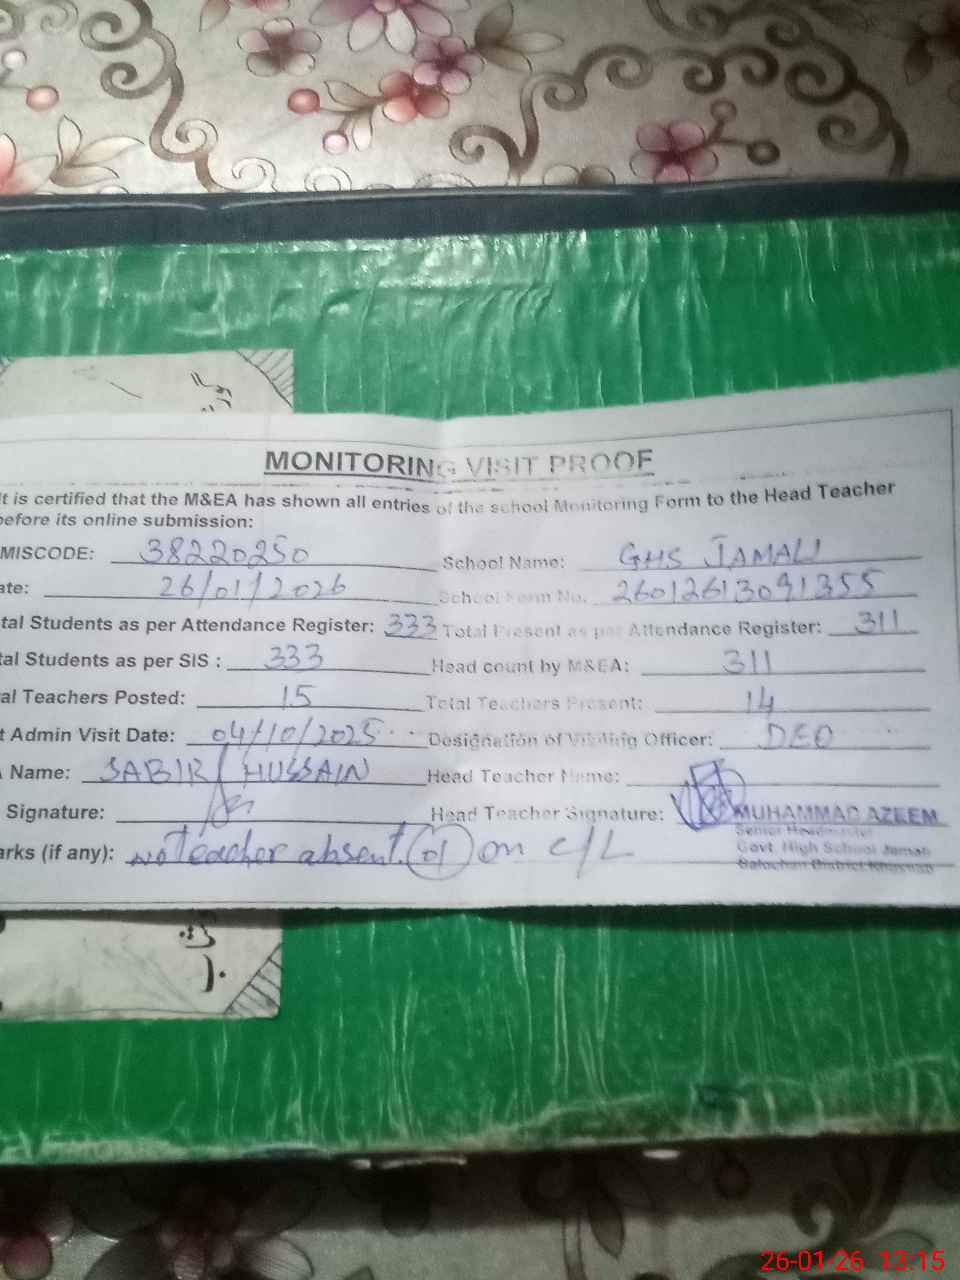 MONITORING VISIT PROOF
It is certified that the M&EA has shown all entries of the school Monitoring Form to the Head Teacher
before its online submission:
MISCODE: 38220250 School Name: GHS JAMALI
ate: 26/01/2026 School Form No. 26012613091355
tal Students as per Attendance Register: 333 Total Present as per Attendance Register: 311
tal Students as per SIS : 333 Head count by M&EA: 311
al Teachers Posted: 15 Total Teachers Present: 14
t Admin Visit Date: 04/10/2025 Designation of Visiting Officer: DEO
Name: SABIR HUSSAIN Head Teacher Name:
Signature: Head Teacher Signature: MUHAMMAD AZEEM
Senior Headmaster
Govt. High School Jamali
Balochan District Khushab
arks (if any): No Teacher absent. 01 on C/L
26-01-26 13:15